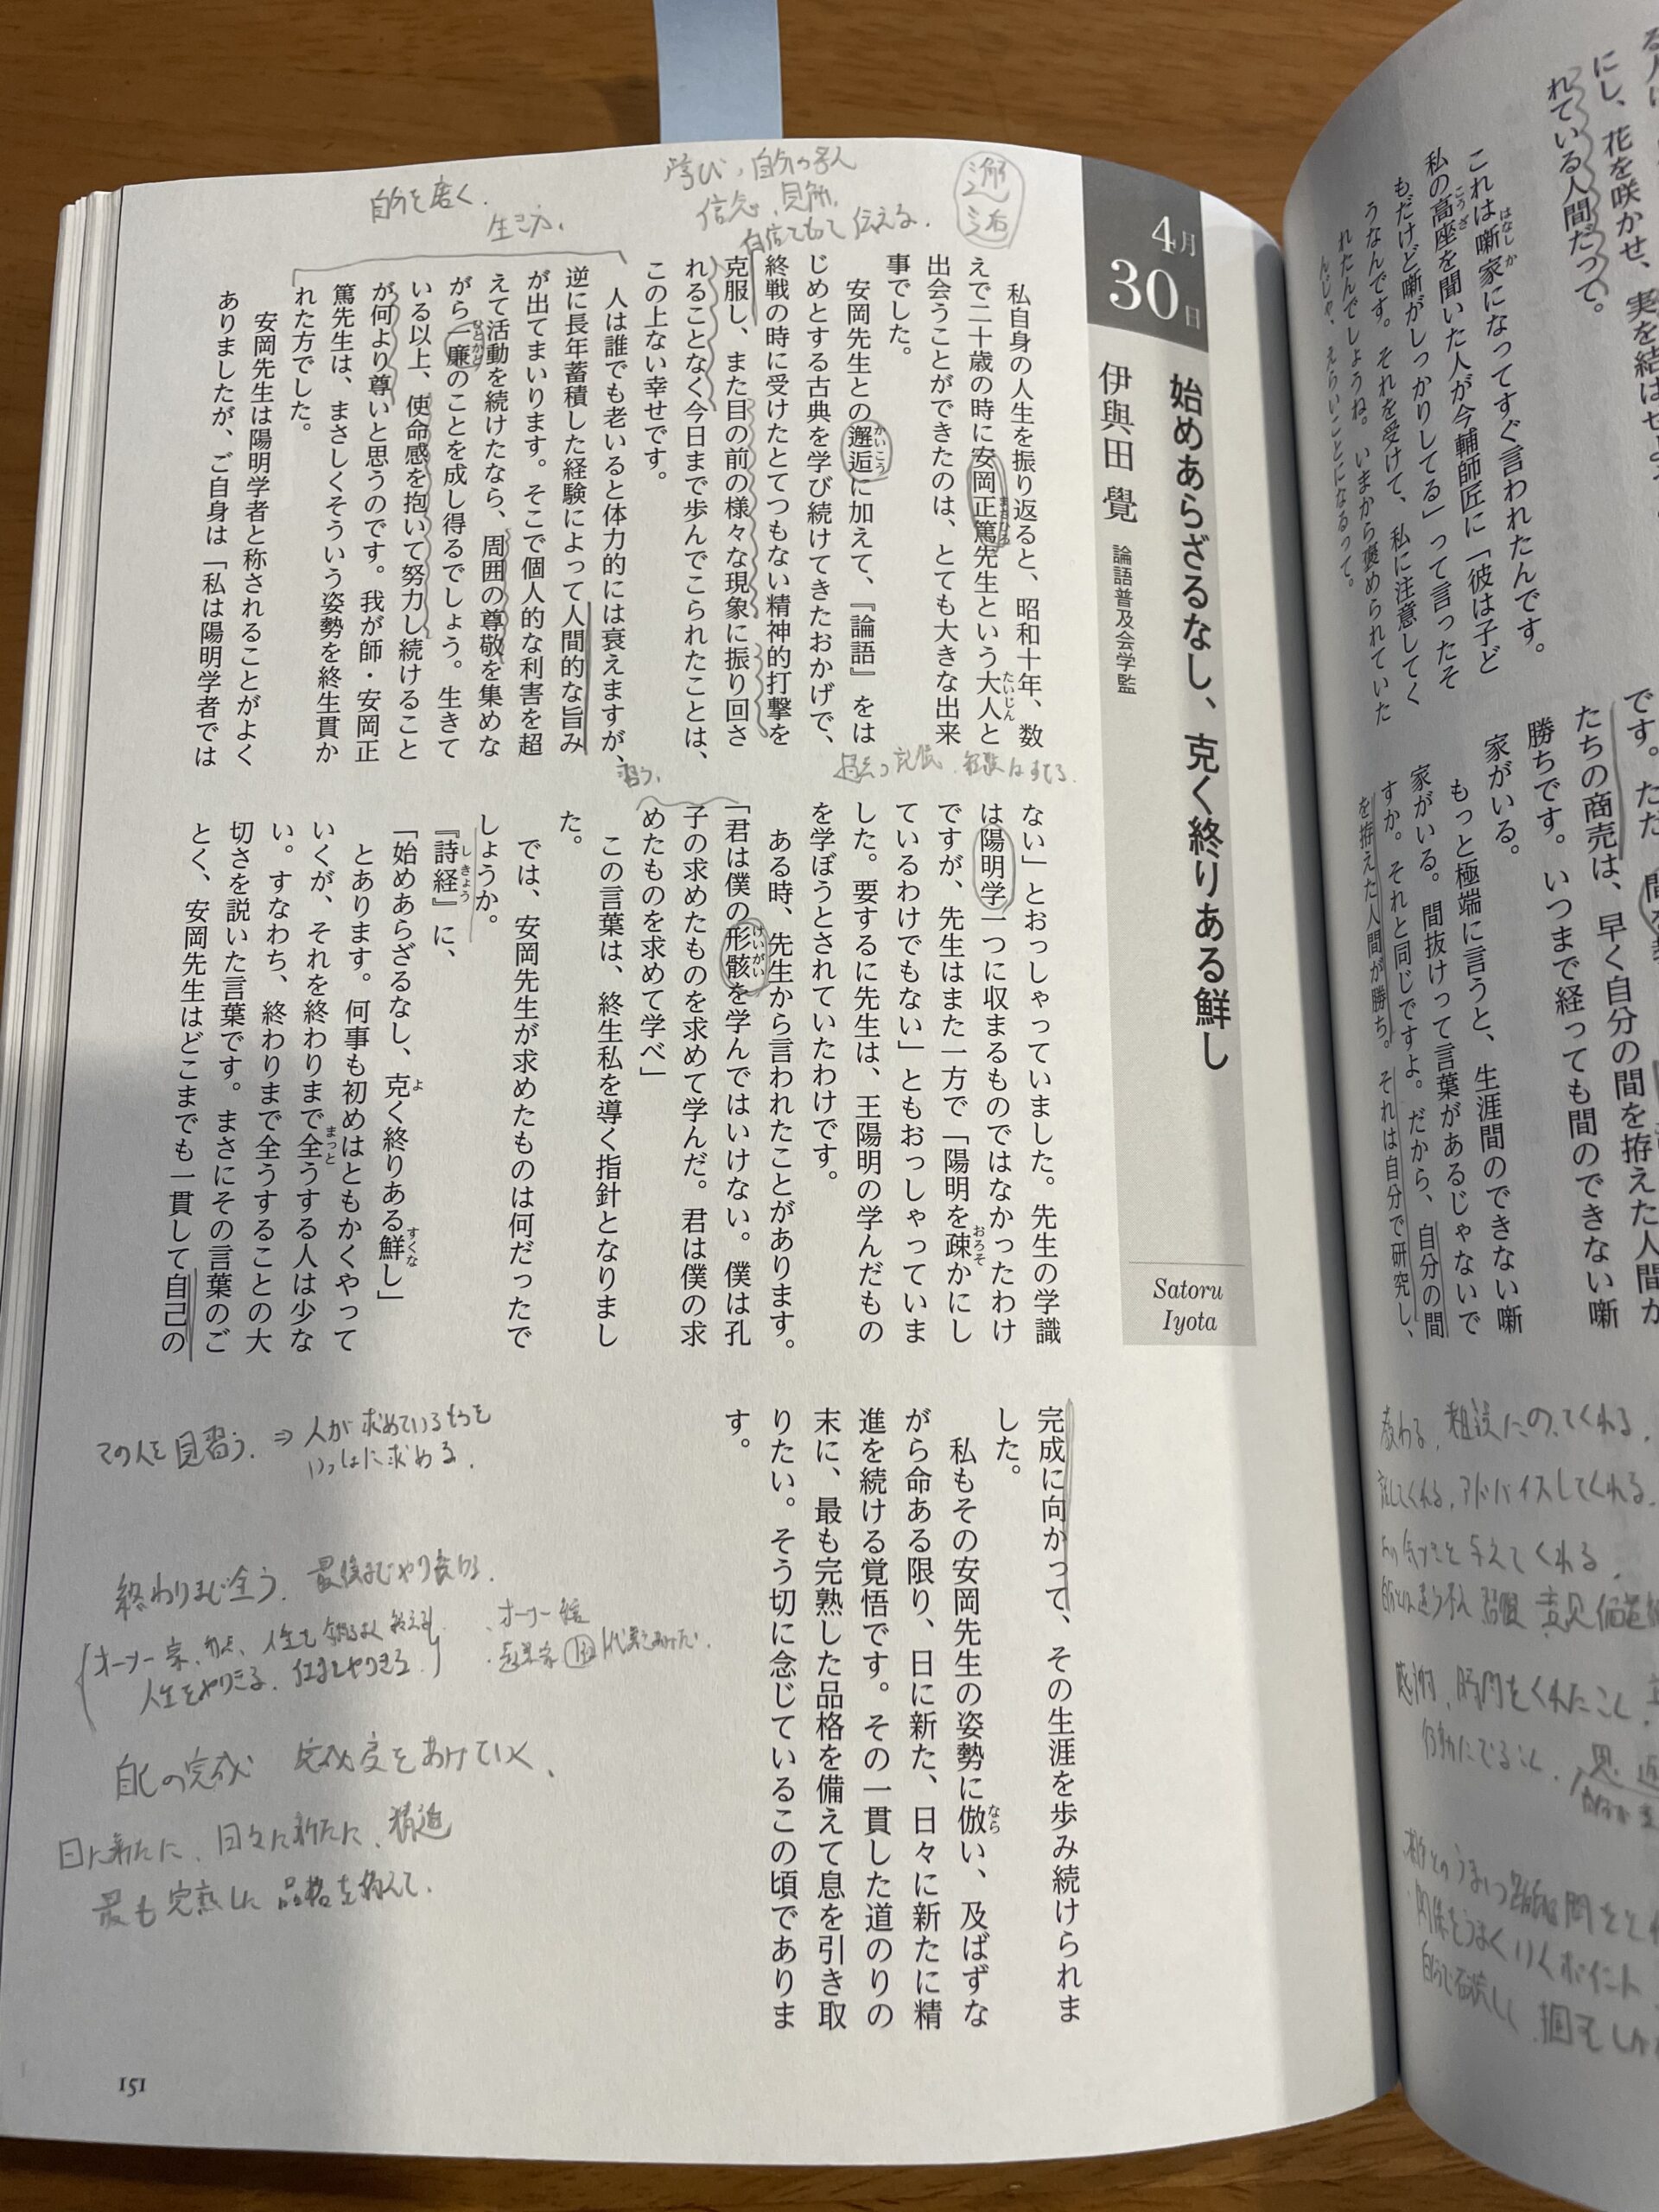 4月
30日
始めあらざるなし、克く終りある鮮し
伊與田 覺 論語普及会学監
Satoru
Iyota
私自身の人生を振り返ると、昭和十年、数
えで二十歳の時に安岡正篤先生という大人と
出会うことができたのは、とても大きな出来
事でした。
安岡先生との邂逅に加えて、『論語』をは
じめとする古典を学び続けてきたおかげで、
終戦の時に受けたとてつもない精神的打撃を
克服し、また目の前の様々な現象に振り回さ
れることなく今日まで歩んでこられたことは、
この上ない幸せです。
人は誰でも老いると体力的には衰えますが、
逆に長年蓄積した経験によって人間的な旨み
が出てまいります。そこで個人的な利害を超
えて活動を続けたなら、周囲の尊敬を集めな
がら一廉のことを成し得るでしょう。生きて
いる以上、使命感を抱いて努力し続けること
が何より尊いと思うのです。我が師・安岡正
篤先生は、まさしくそういう姿勢を終生貫か
れた方でした。
安岡先生は陽明学者と称されることがよく
ありましたが、ご自身は「私は陽明学者では
ない」とおっしゃっていました。先生の学識
は陽明学一つに収まるものではなかったわけ
ですが、先生はまた一方で「陽明を疎かにし
ているわけでもない」ともおっしゃっていま
した。要するに先生は、王陽明の学んだもの
を学ぼうとされていたわけです。
ある時、先生から言われたことがあります。
「君は僕の形骸を学んではいけない。僕は孔
子の求めたものを求めて学んだ。君は僕の求
めたものを求めて学べ」
この言葉は、終生私を導く指針となりまし
た。
では、安岡先生が求めたものは何だったで
しょうか。
『詩経』に、
「始めあらざるなし、克く終りある鮮し」
とあります。何事も初めはともかくやって
いくが、それを終わりまで全うする人は少な
い。すなわち、終わりまで全うすることの大
切さを説いた言葉です。まさにその言葉のご
とく、安岡先生はどこまでも一貫して自己の
完成に向かって、その生涯を歩み続けられま
した。
私もその安岡先生の姿勢に倣い、及ばずな
がら命ある限り、日に新た、日々に新たに精
進を続ける覚悟です。その一貫した道のりの
末に、最も完熟した品格を備えて息を引き取
りたい。そう切に念じているこの頃でありま
す。
邂逅
学び、自分の考え
信念、見解、
自信をもって伝える。
自分を磨く。
生き方、
習う、
その人を見習う。⇒人が求めているものを
いっしょに求める。
終わりまで全う。最後までやり長ける。
人生をやりきる。仕事をやりきる。
自己の完成 完成度をあげていく、
日に新たに、日々に新たに、精進
最も完熟した品格を備えて。
151
れている人間だって。
これは噺家になってすぐ言われたんです。
私の高座を聞いた人が今輔師匠に「彼は子ど
もだけど噺がしっかりしてる」って言ったそ
うなんです。それを受けて、私に注意してく
れたんでしょうね。いまから褒められていた
んじゃ、えらいことになるって。
たちの商売は、早く自分の間を拵えた人間が
勝ちです。いつまで経っても間のできない噺
家がいる。
もっと極端に言うと、生涯間のできない噺
家がいる。間抜けって言葉があるじゃないで
すか。それと同じですよ。だから、自分の間
を拵えた人間が勝ち。それは自分で研究し、
アドバイスしてくれる。